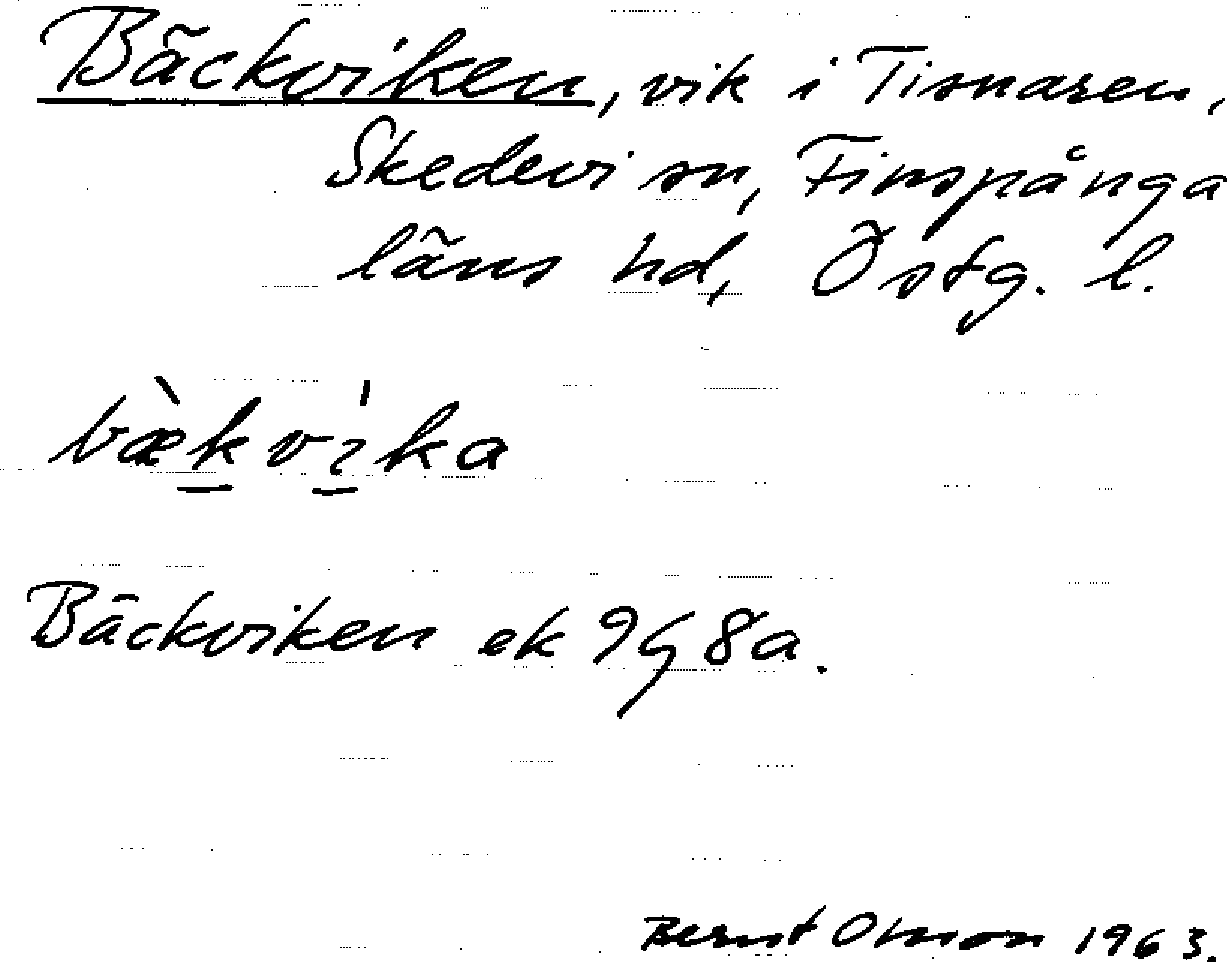 Bäckviken, vik i Tisnaren,
Skedevi sn, Finspånga
läns hd, Östg. l.
bæ̀kvı̍ka
Bäckviken ek 9G 8a.
Bernt Olsson 1963.